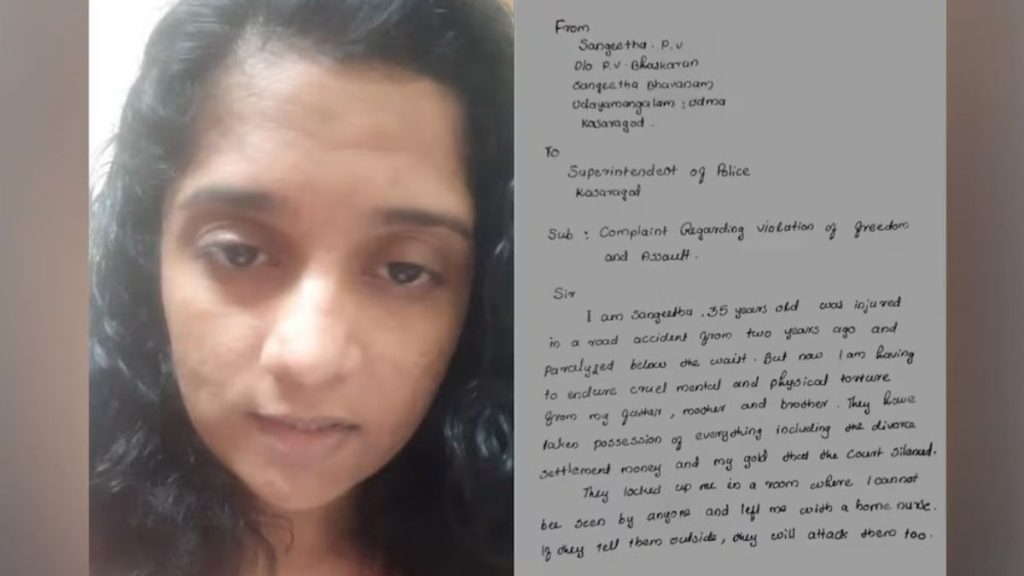 From
Sangeetha. P.V
D/o P.V. Bhaskaran
Sangeetha Bhavanam
Udayamangalam ; Udma
Kasaragod.
To
Superintendent of Police
Kasaragod
Sub : Complaint Regarding violation of freedom
and Assault.
Sir
I am Sangeetha. 35 years old was injured
in a road accident from two years ago and
paralyzed below the waist. But now I am having
to endure cruel mental and physical torture
from my father, mother and brother. They have
taken possession of everything including the divorce
settlement money and my gold that the Court
They locked up me in a room where I cannot
bee seen by anyone and left me with a home nurse.
If they tell them outside, they will attack them too.